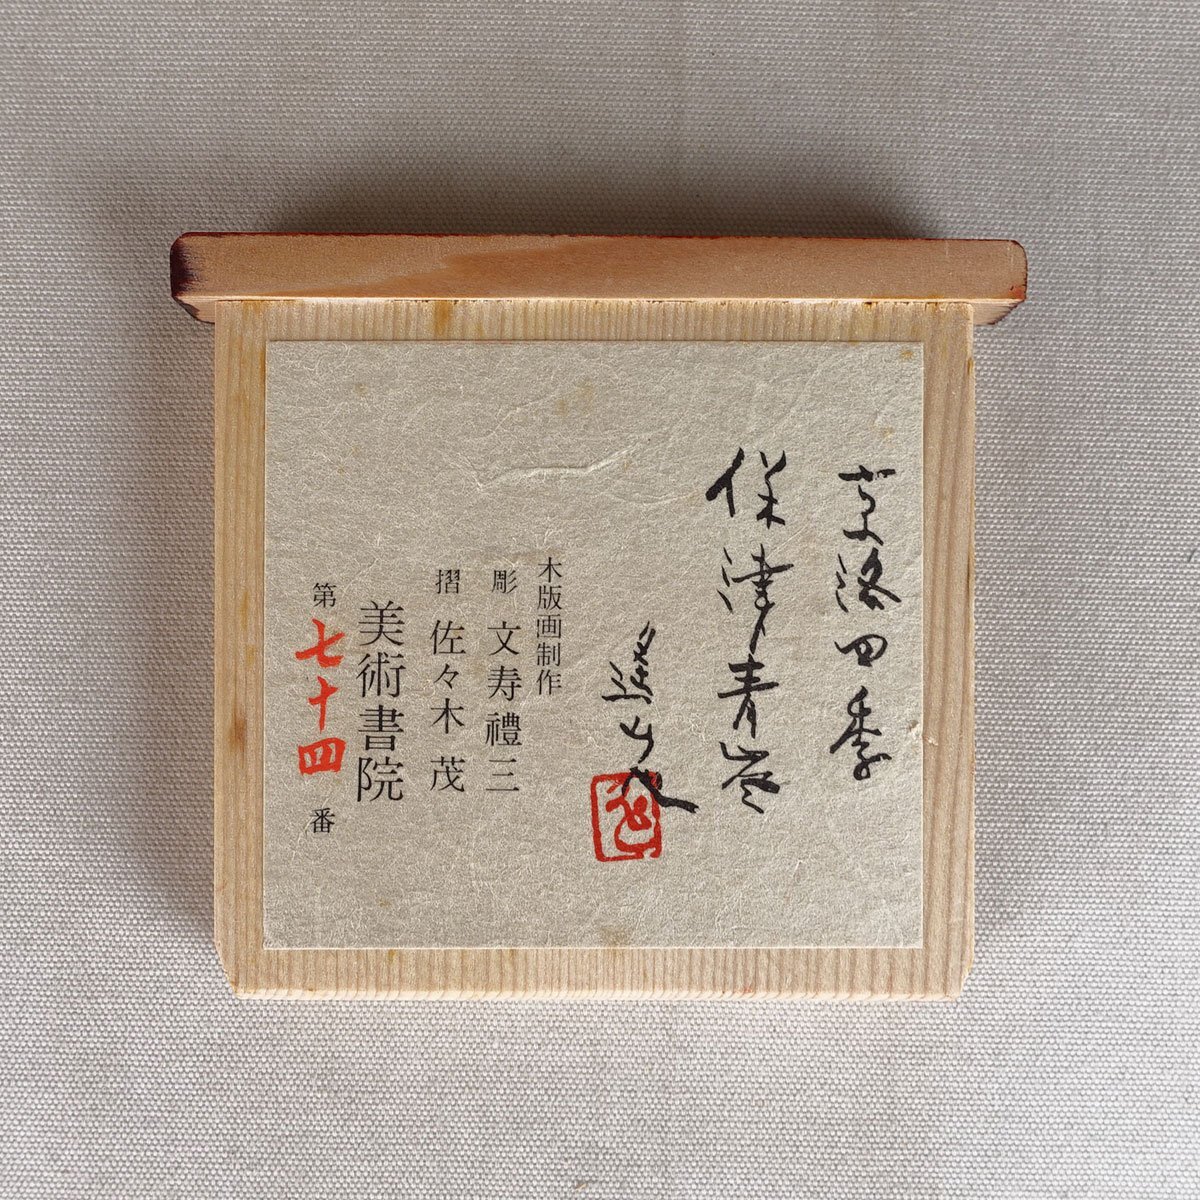 京洛四季
保津青嵐
魁夷
木版画制作
彫 文寿禮三
摺 佐々木茂
美術書院
第七十四番